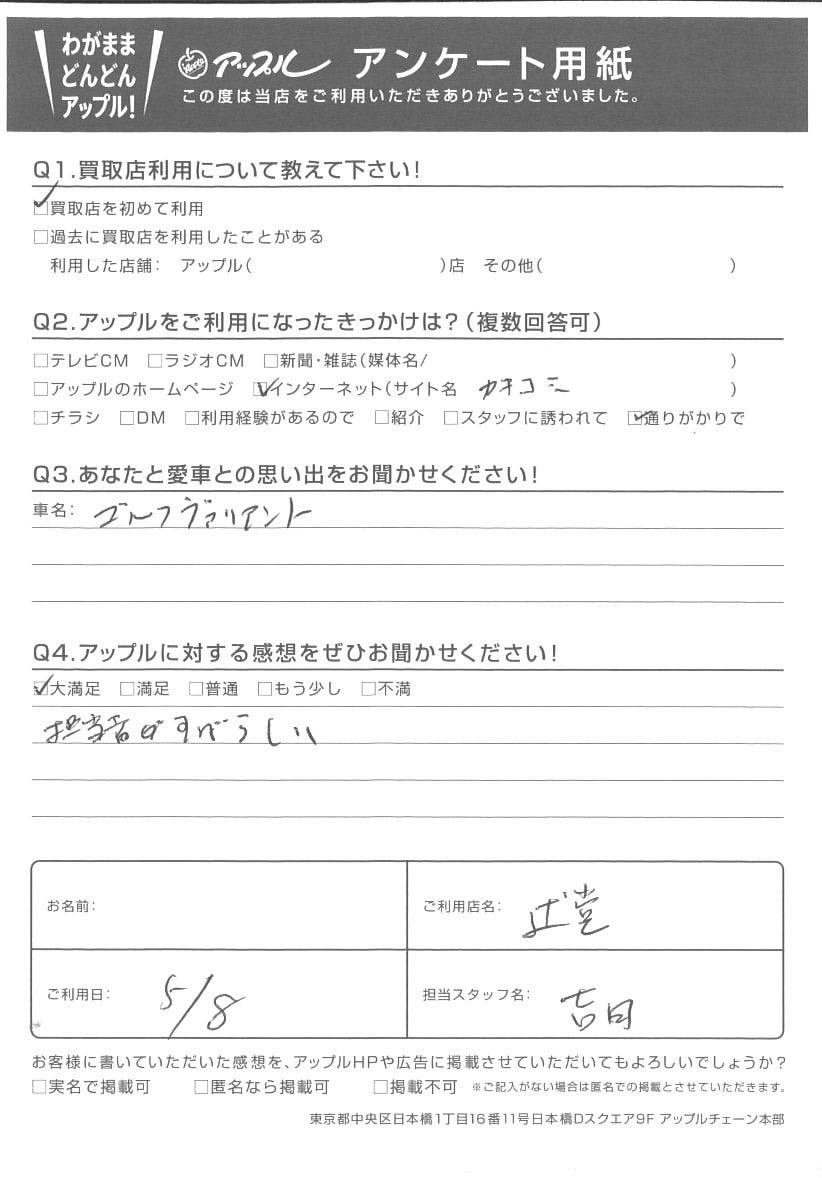 わがまま
どんどん
アップル!
アップル アンケート用紙
この度は当店をご利用いただきありがとうございました。
Q1.買取店利用について教えて下さい!
☑買取店を初めて利用
□過去に買取店を利用したことがある
利用した店舗: アップル( )店 その他( )
Q2.アップルをご利用になったきっかけは?(複数回答可)
□テレビCM □ラジオCM □新聞・雑誌(媒体名/ )
□アップルのホームページ ☑インターネット(サイト名 カキコミ )
□チラシ □DM □利用経験があるので □紹介 □スタッフに誘われて ☑通りがかりで
Q3.あなたと愛車との思い出をお聞かせください!
車名: ゴルフヴァリアント
Q4.アップルに対する感想をぜひお聞かせください!
☑大満足 □満足 □普通 □もう少し □不満
担当者がすばらしい
お名前:
ご利用店名: 辻堂
ご利用日: 5/8
担当スタッフ名: 吉田
お客様に書いていただいた感想を、アップルHPや広告に掲載させていただいてもよろしいでしょうか?
□実名で掲載可 □匿名なら掲載可 □掲載不可 ※ご記入がない場合は匿名での掲載とさせていただきます。
東京都中央区日本橋1丁目16番11号日本橋Dスクエア9F アップルチェーン本部